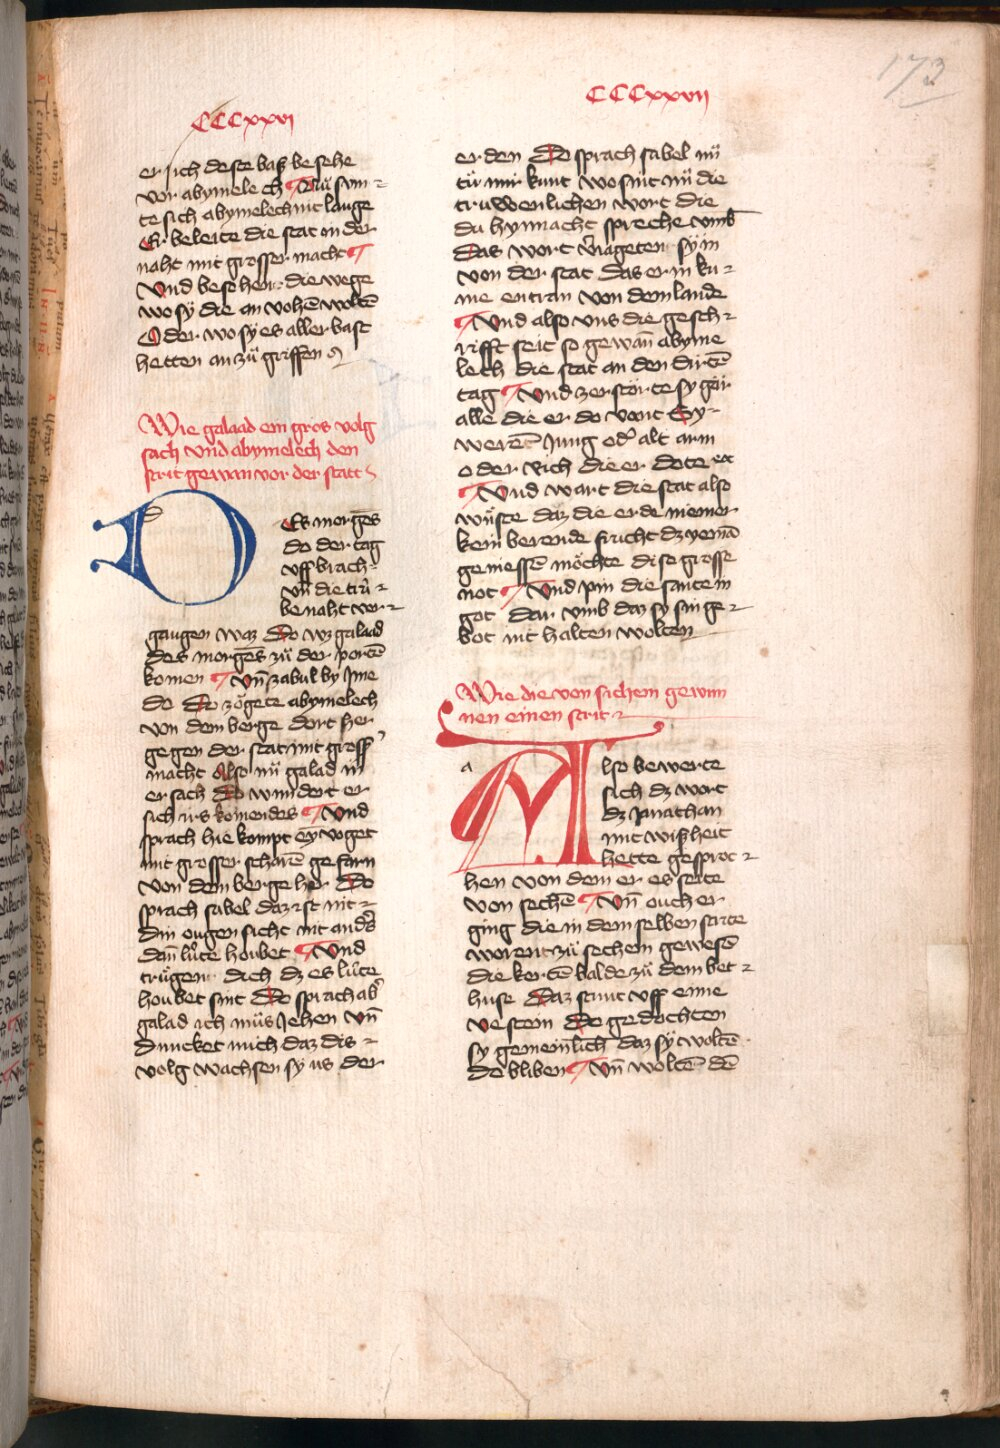 173
CCCxxvi
er sich deste bas besehe
vor abymelech Nu sum-
te sich abymelech nit lange
Er beleite die stat in der
naht mit grosser macht
Vnd besehen die wege
wo sy die an vohē woltē
Oder wo sy es aller bast
hetten an zü griffen
Wie galaad ein gros volg
sach vnd abymelech den
strit gewan vor der statt
Es morgēs
do der tag
vff brach
vn̄ die trü-
be naht ver-
gangen waz Do wz galaad
des morgēs zü der portē
komen Vn̄ zabul by jme
do Do zögete abymelech
von dem berge dort her
gegen der stat mit gross
macht Also nü galad in
er sach Do wundert er
sich irs komendes Vnd
sprach hie kompt ey voget
mit grosser scharē gefarn
von dem berge her Do
sprach sabel daz ist nit
din ougen sicht nit anders
dan̄ lüte houbet Vnd
trügen dich dz es lüte
houbet sint Do sprach ab
galad ich müs jehen vn̄
duncket mich daz dis
volg wachsen sy us der
CCCxxvii
erden Do sprach sabel nü
tü mir kunt wo sint nü die
truwenlichen wort die
du hynnacht spreche vmb
das wort v̄iageten sy in
von der stat das er in ku-
me entran von dem lande
Vnd also vns die gesch-
rifft seit so gewan̄ abyme
lech die stat an den dirtē
tag Vnd zerstörte sy gar
alle die er do vant Sy
werēt jung od' alt arm
oder rich die er dote er
Vnd wart die stat also
wüste daz die erde niemer
kein berende frucht dz yemā
geniessen möchte dise grosse
not Vnd pin die sante in
got dar vmb daz sy sin ge-
bot nit halten wolten
Wie die von sichem gewin
nen einen strit
a
lso bewerte
sich dz wort
dz janathan
mit wisheit
hette gesproc-
hen von dem er es seite
von sechē Vn̄ ouch er
ging die in dem selben sarte
worent zü sechem gewesē
die kertē balde zü dem bet-
huse Daz stunt vff eime
vestein Do gedochten
sy gemeinlich daz sy woltē
do bliben Vn̄ woltē dē